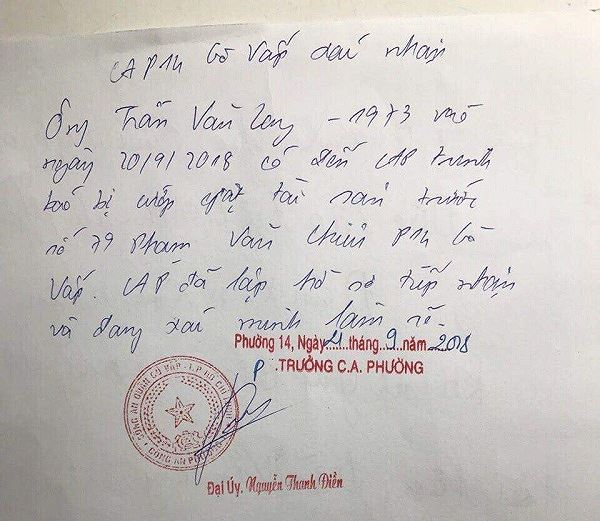 CAP14 Gò Vấp xác nhận
Ông Trần Văn Long - 1973 vào
ngày 20/9/2018 có đến CAP trình
báo bị cướp giật tài sản trước
số 79 Phạm Văn Chiêu P14 Gò
Vấp. CAP đã lập hồ sơ tiếp nhận
và đang xác minh làm rõ.
Phường 14, Ngày 21 tháng 9 năm 2018
P.TRƯỞNG C.A. PHƯỜNG
CÔNG AN QUẬN GÒ VẤP - T.P HỒ CHÍ MINH
CÔNG AN PHƯỜNG
Đại Úy. Nguyễn Thanh Điền